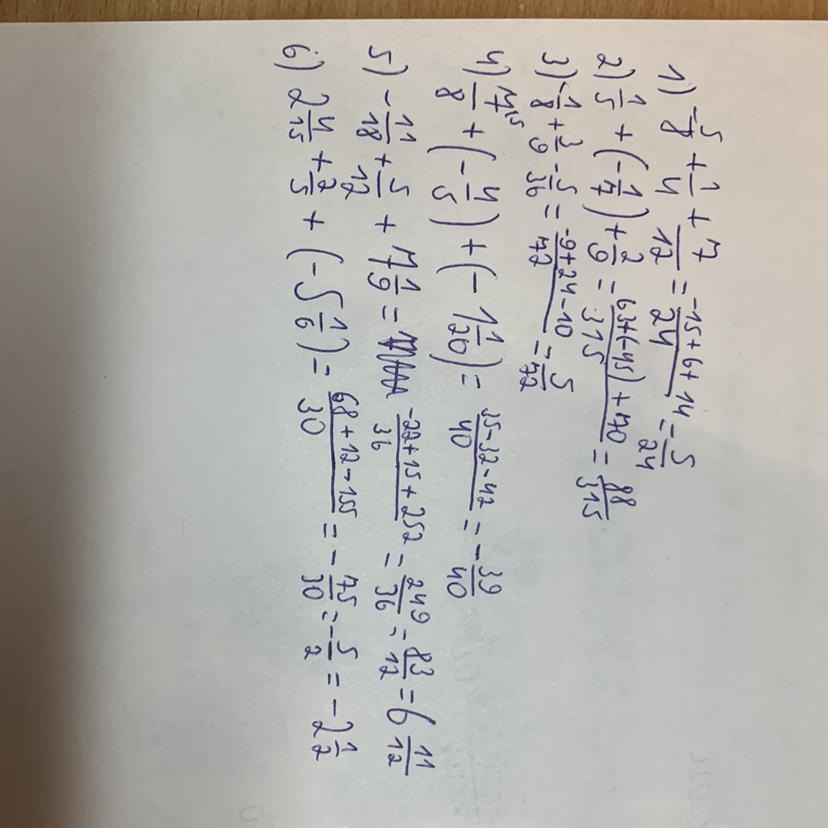 1) -5/8 + 1/4 + 7/12 = (-15+6+14)/24 = 5/24
2) 1/5 + (-1/7) + 2/9 = (63+(-45)+70)/315 = 88/315
3) -1/8 + 3/9 - 5/36 = (-9+24-10)/72 = 5/72
4) 7/8 + (-4/5) + (-1 1/20) = (35-32-42)/40 = -39/40
5) -11/18 + 5/12 + 7 1/9 = (-22+15+252)/36 = 249/36 = 83/12 = 6 11/12
6) 2 4/15 + 2/5 + (-5 1/6) = (68+12-155)/30 = -75/30 = -5/2 = -2 1/2